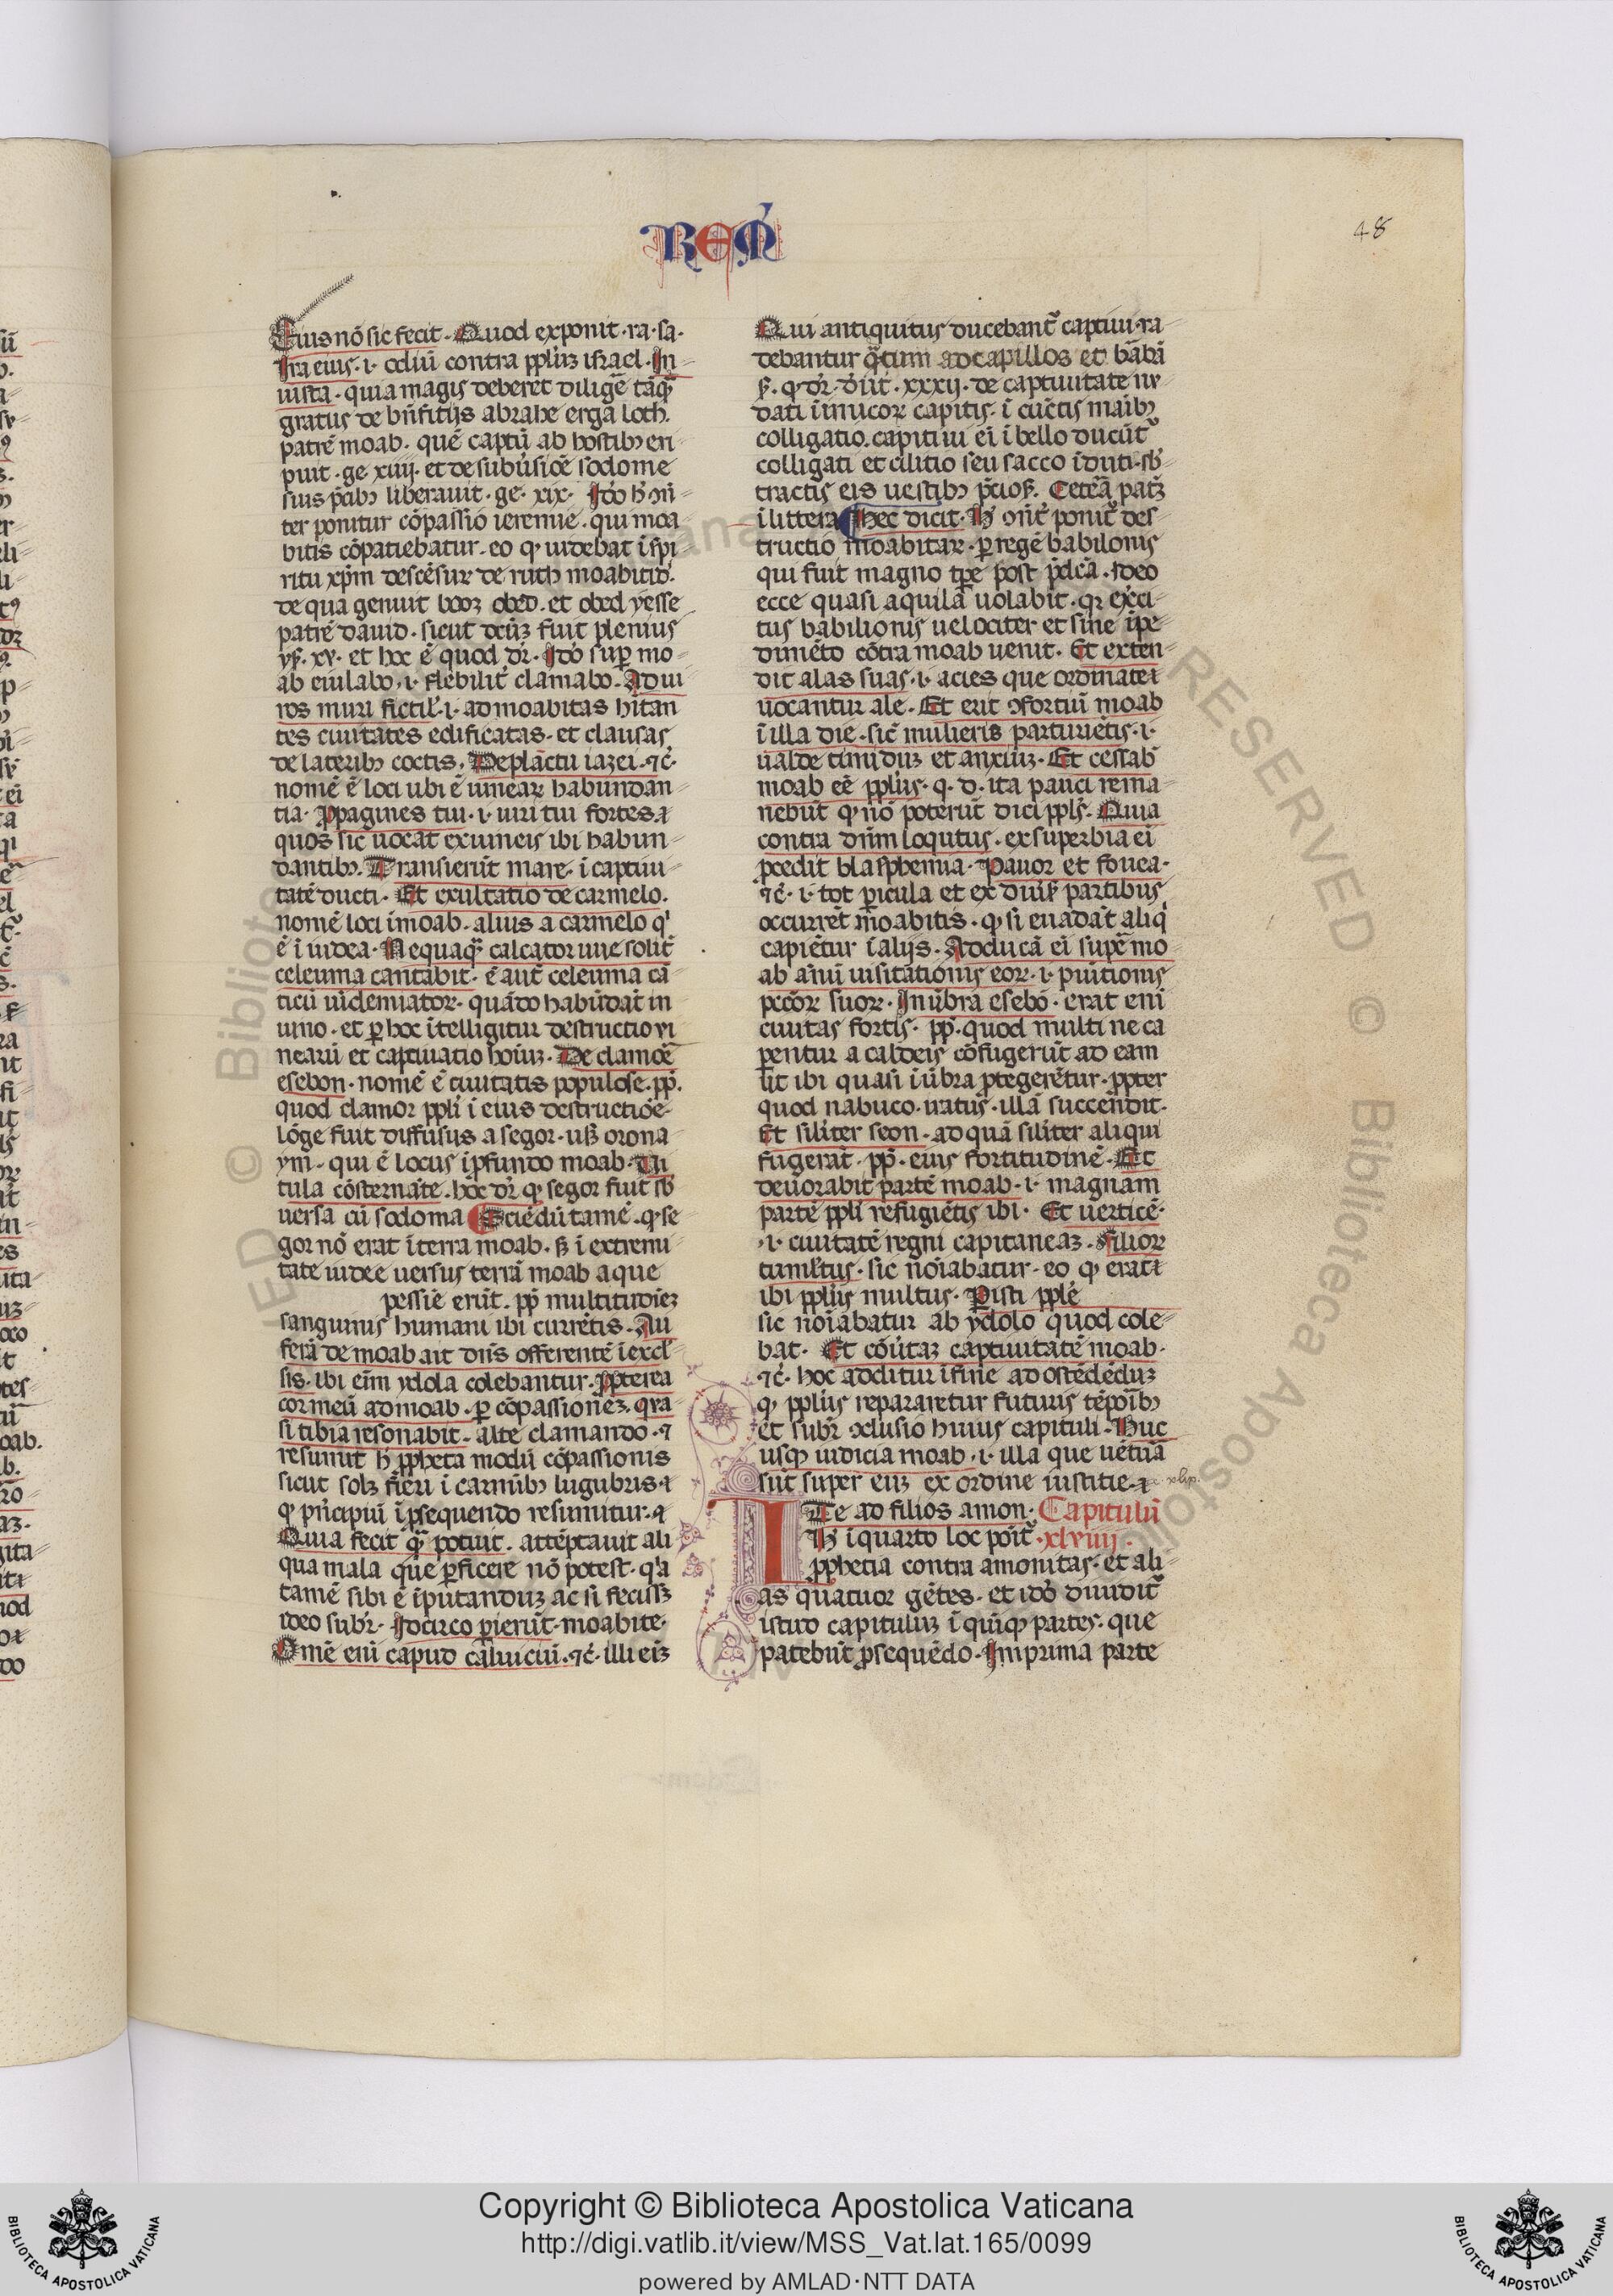 48
Eius nō sic fecit. Quod exponit. ra. sa.
Ira eius. i. odiū contra pplūz isrl̄ael. In
iusta. quia magis deberet dilige᷑ tāq̄
gratus de bn̄fitijs abrahe erga loth.
patrē moab. quē captū ab hostibꝫ eri
puit. ge xiiij. et de subūsiōe sodome
suis p̄cibꝫ liberauit. ge. xix.
ter ponitur cōpassio ieremie. qui moa
bitis cōpatiebatur. eo ꝙ uidebat ī spi
ritu xp̄m descēsur̄ de ruth moabitid̄.
de qua genuit booz obed. et obed yesse
patrē dauid. sicut dcūz fuit plenius
ys̄. xv. et hoc ē quod dr̄. Idō sup̄ mo
ab eiulabo. i. flebilit̄ clamabo. Ad ui
ros muri fictil̄. i. ad moabitas hītan
tes ciuitates edificatas. et clausas
de lateribꝫ coctis. De plāctu iazei. ⁊c̄.
nomē ē loci ubi ē uinearꝝ habundan
tia. Ꝓpagines tui. i. uiri tui fortes
quos sic uocat ex uineis ibi habun
dantibꝫ. Transierūt mare. i captiui
tatē ducti. Et exultatio de carmelo.
nomē loci ī moab. alius a carmelo q'
ē ī iudea. Nequaq̄ calcator uue solit̄
celeuma cantabit. ē aut̄ celeuma cā
ticū uīdemiatorꝝ. quādo habūdat in
uino. et ꝑ hoc ītelligitur destructio vi
nearū et captiuatio hoīuz. De clamōe
esebon. nomē ē ciuitatis populose. pp̄.
quod clamor ppl̄i ī eius destructiōe
lōge fuit diffusus a segor. usꝫ orona
ym. qui ē locus ī ꝓfundo moab. Ui
tula cōsternāte. hoc dr̄ ꝙ segor fuit sb̄
uersa cū sodoma Sciēdū tamē. ꝙ se
gor nō erat ī terra moab. sꝫ ī extremi
tate iudee uersus terrā moab aque
pessīe erūt. pp̄ multitudīez
sanguinis humani ibi currētis. Au
ferā de moab ait dn̄s offerentē ī excl̄
sis. ibi eīm ydola colebantur. Ꝓpterea
cor meū ad moab. ꝑ cōpassionez. q̄a
si tibia resonabit. alte clamando. ⁊
resumit h̄ ꝓpheta modū cōpassionis
sicut solꝫ fieri ī carmībꝫ lugubris
ꝙ p̄ncipiū ī ꝓsequendo resumitur.
Quia fecit q̄ potuit. attēptauit ali
qua mala que ꝑficere nō potest. q'a
tamē sibi ē īputanduz ac si fecissꝫ
ideo subr̄. Idcirco pierūt. moabite.
Omē eni caput caluiciū. ⁊c̄. illi eīz
Qui antiquitus ducebant̄ captiui. ra
debantur q̄tum ad capillos et bābā
dati īimicorꝝ capitis. ī cūctis maībꝫ
colligatio. captiui eī ī bello ducūt̄
colligati et cilitio seu sacco īduti. sb̄
tractis eis uestibꝫ p̄ciosꝭ. Cetēa patꝫ
ī littera Hec dicit. H̄ ponit̄ des
tructio moabitarꝝ. ꝑ regē babilonis
qui fuit magno tꝑe post p̄dc̄a. ideo
ecce quasi aquila uolabit. qꝛ exēci
tus babilionis uelociter et sine īpe
dimēto cōtra moab uenit. Et exten
dit alas suas. i. acies que ordinate
uocantur ale. Et erit ꝯfortiū moab
ī illa die. sic̄ mulieris parturiētis. i.
ualde timiduz et anxiuz. Et cessab̄
moab eē pplūs. q. d. ita pauci rema
nebūt ꝙ nō poterūt dici ppl̄s. Quia
contra dn̄m loqutus. ex superbia eī
ꝓcedit blasphemia. Pauor et fouea.
⁊c̄. i. tot ꝑicula et ex diūis partibus
occurrēt moabitis. ꝙ si euadāt aliq'
capiētur ī alijs. Adducā eī supē mo
ab ānū uisitationis eorꝝ. i. punītionis
pccōꝝ suorꝝ. In ūbra esebō. erat eni
ciuitas fortis. pp̄. quod multi ne ca
perentur a caldeis cōfugerūt ad eam
ut ibi quasi ī ūbra ꝓtegerētur. ꝓpter
quod nabuco. iratus. illā succēdit.
Et silīter seon. ad quā silīter aliqui
fugerāt. pp̄. eius fortitudinē. Et
deuorabit partē moab. i. magnam
partē ppl̄i refugiētis ibi. Et uerticē.
.i. ciuitatē regni capitaneaz. filiorꝝ
tumltus. sic noīabatur. eo ꝙ erat
ibi pplūs multus. Pisti pplē
sic noīabatur ab ydolo quod cole
bat. Et cōūtaz captiuitatē moab.
⁊c̄. hoc additur ī fine ad ostēdēduz
ꝙ pplūs repararetur futuris tēpoībꝫ
et subr̄ ꝯclusio huius capituli. Huc
usqꝫ iudicia moab. i. illa que uētua
sūt super euz ex ordine iustitie.
Te ad filios amon. Capitulū
H̄ ī quarto loc poīt̄ xlviiij.
ꝓphetia contra amonitas. et ali
as quatuor gētes. et idō diuidit̄
istud capituluz ī quīqꝫ partes. que
patebūt ꝓsequēdo. In prima parte
Copyright © Biblioteca Apostolica Vaticana
http://digi.vatlib.it/view/MSS_Vat.lat.165/0099
powered by AMLAD·NTT DATA
BIBLIOTECA APOSTOLICA VATICANA
BIBLIOTECA APOSTOLICA VATICANA